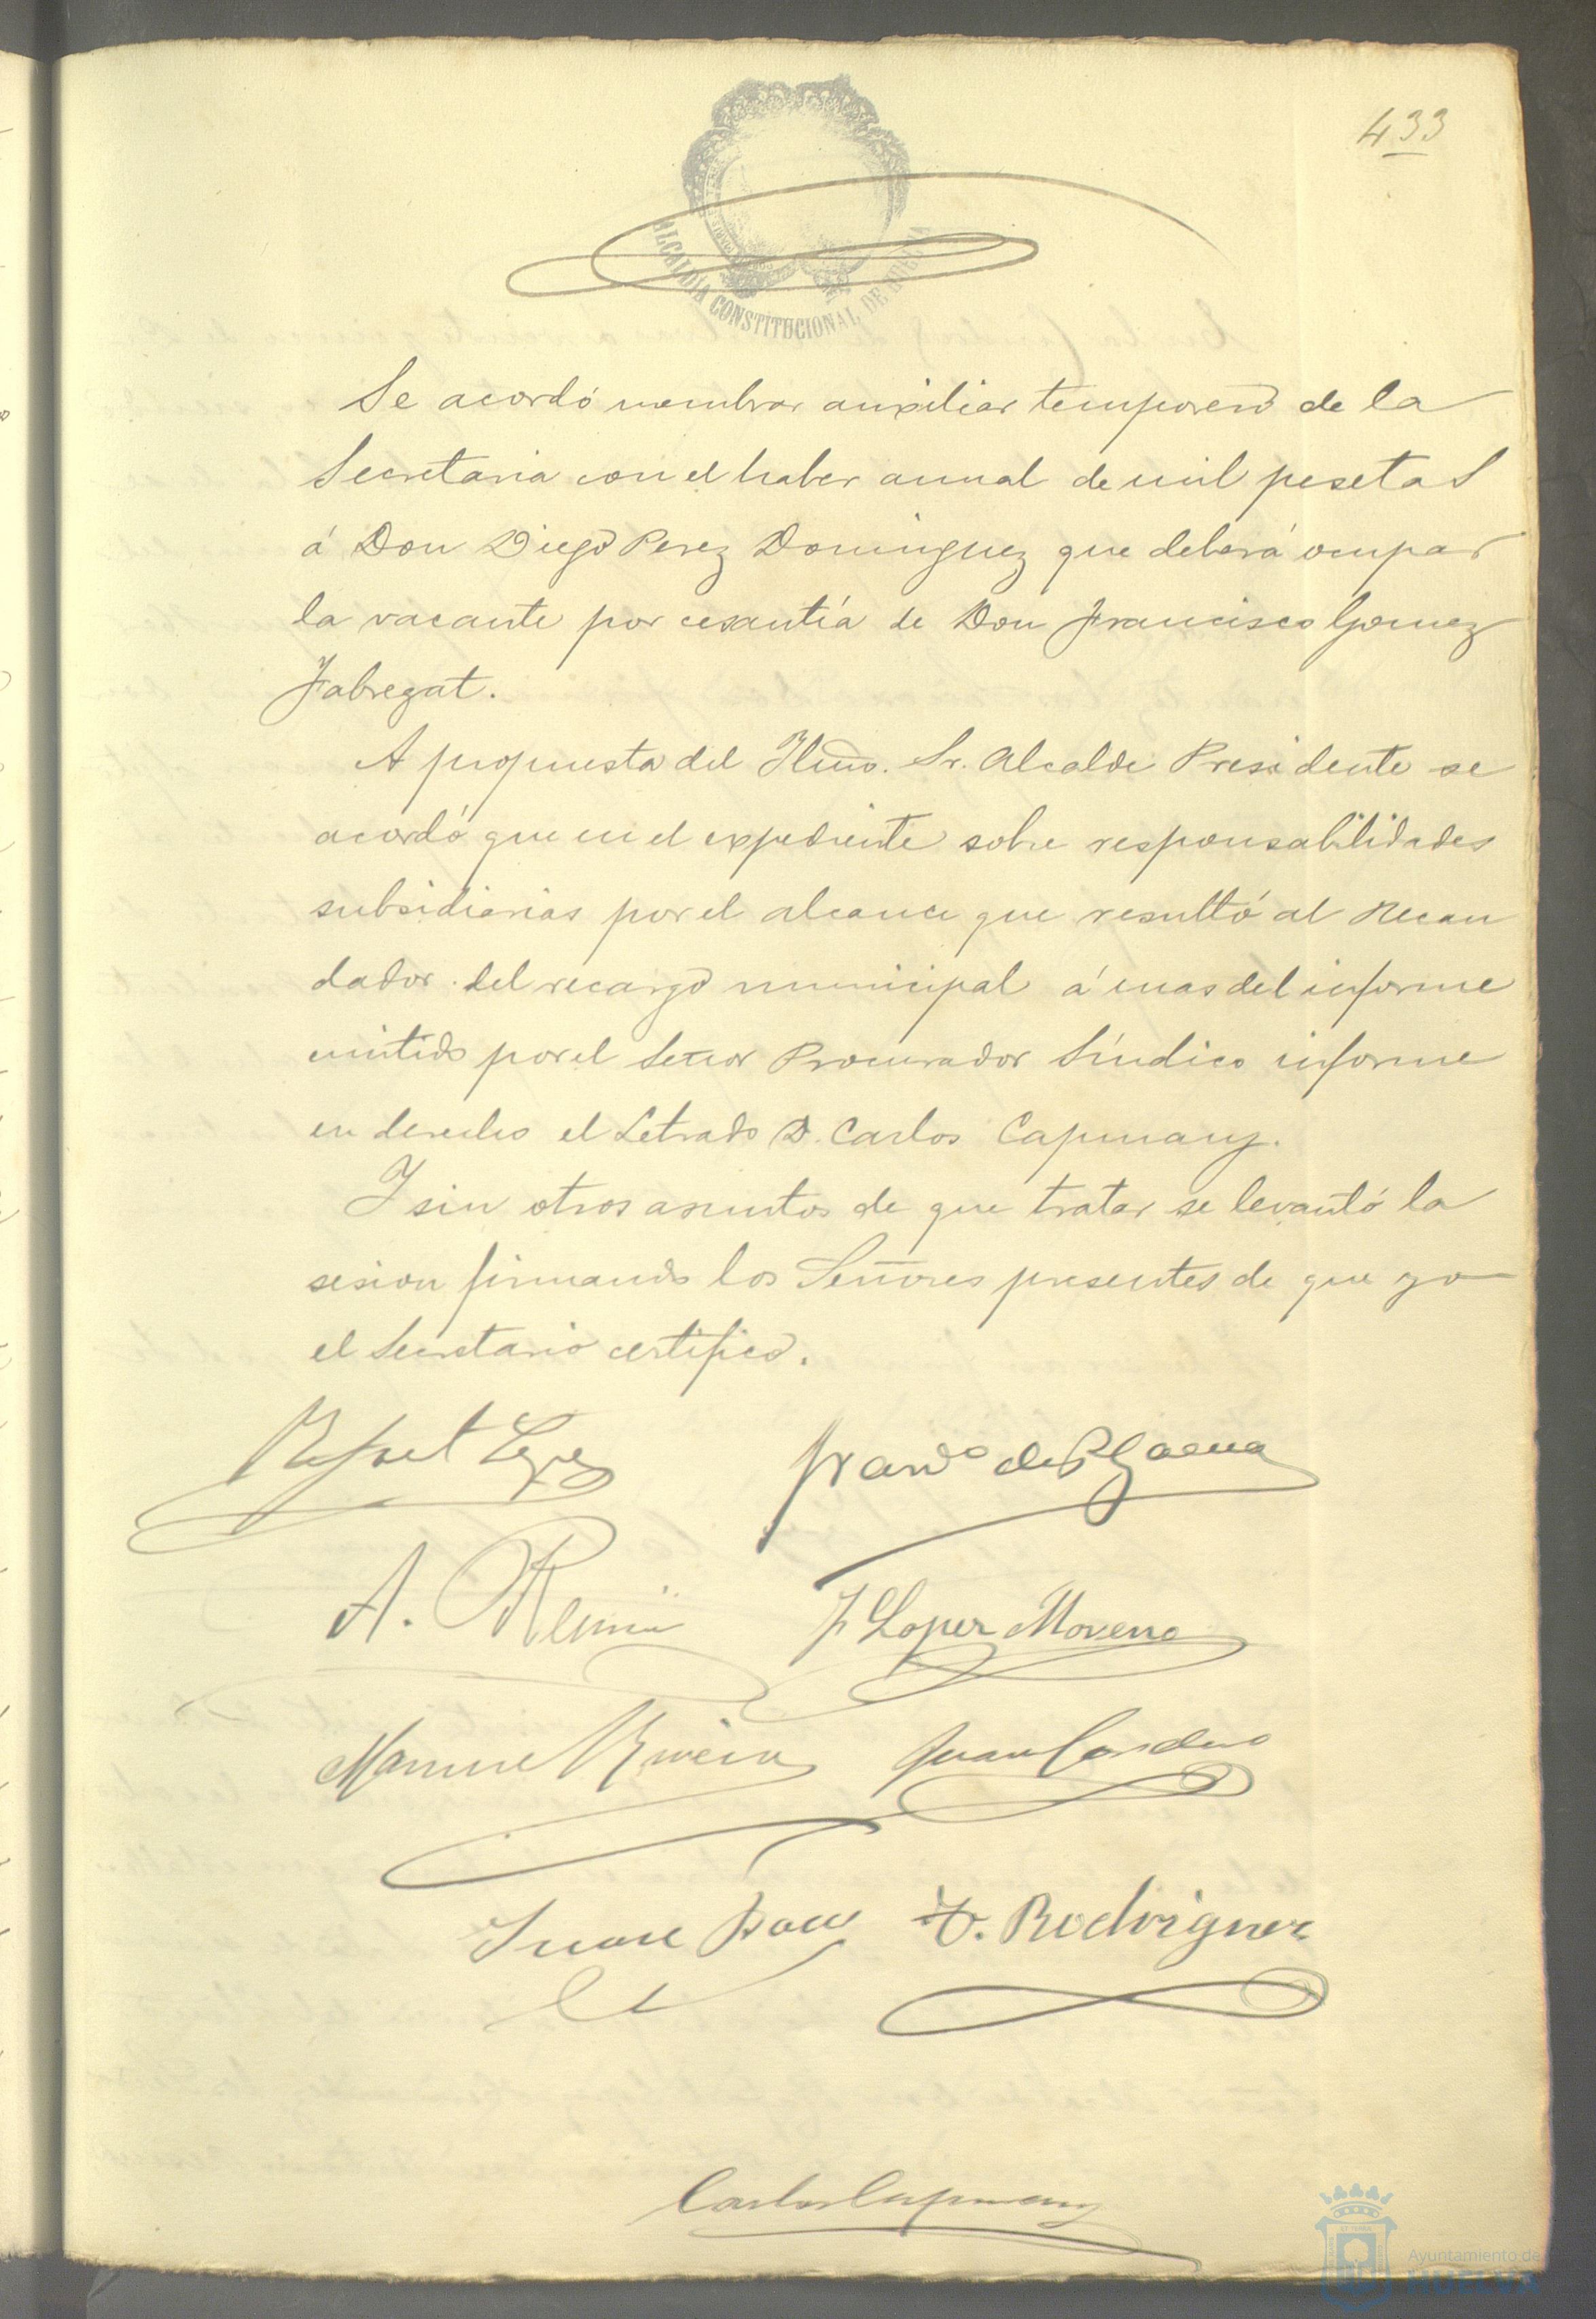 433
ALCALDÍA CONSTITUCIONAL DE HUELVA
Se acordó nombrar auxiliar temporero de la
Secretaria con el haber anual de mil pesetas
á Don Diego Perez Dominguez que deberá ocupar
la vacante por cesantía de Don Francisco Gomez
Fabregat.
A propuesta del Ilmo. Sr. Alcalde Presidente se
acordó que en el expediente sobre responsabilidades
subsidiarias por el alcance que resultó al Recau
dador del recargo municipal á mas del informe
emitido por el Señor Procurador Síndico informe
en derecho el Letrado D. Carlos Capmany.
Y sin otros asuntos de que tratar se levantó la
sesion firmando los Señores presentes de que yo
el Secretario certifico.
Rafael Lopez
Franco de P
A.
F Lopez Moreno
Manuel
Juan Cordero
F. Rodriguez
Carlos Capmany
Ayuntamiento de
HUELVA